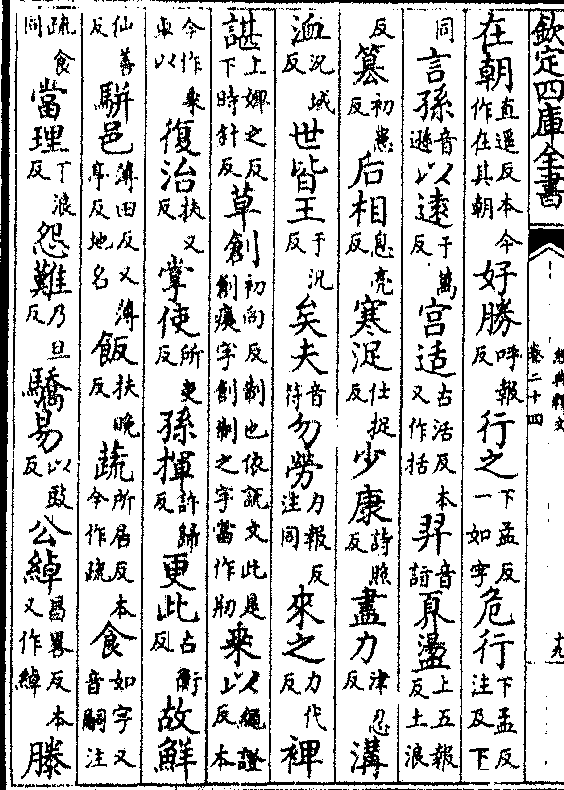 欽定四庫全書
經典釋文
卷二十四
十九
在朝直遥反本今作在其朝好勝呼報反行之下孟反一如字危行下孟反注及下
同言孫音遜以遠于萬反宫适古活反本又作括羿音詣奡盪上五報反土浪
反篡初患反后相息亮反寒浞仕捉反少康詩照反盡力津忍反溝
洫况域反世皆王于况反矣夫音符勿勞力報反注同來之力代反裨
諶上婢之反下時針反草創初向反制也依說文此是創痍字創制之字當作刱乗以繩證反本
今作乗車以復治扶又反掌使所吏反孫揮許歸反更此古衡反故鮮
仙善反駢邑薄田反又薄亭反地名飯扶晚反蔬所居反本今作疏食如字又音嗣注
疏食同當理丁浪反怨難乃旦反驕易以豉反公綽昌畧反本又作綽滕